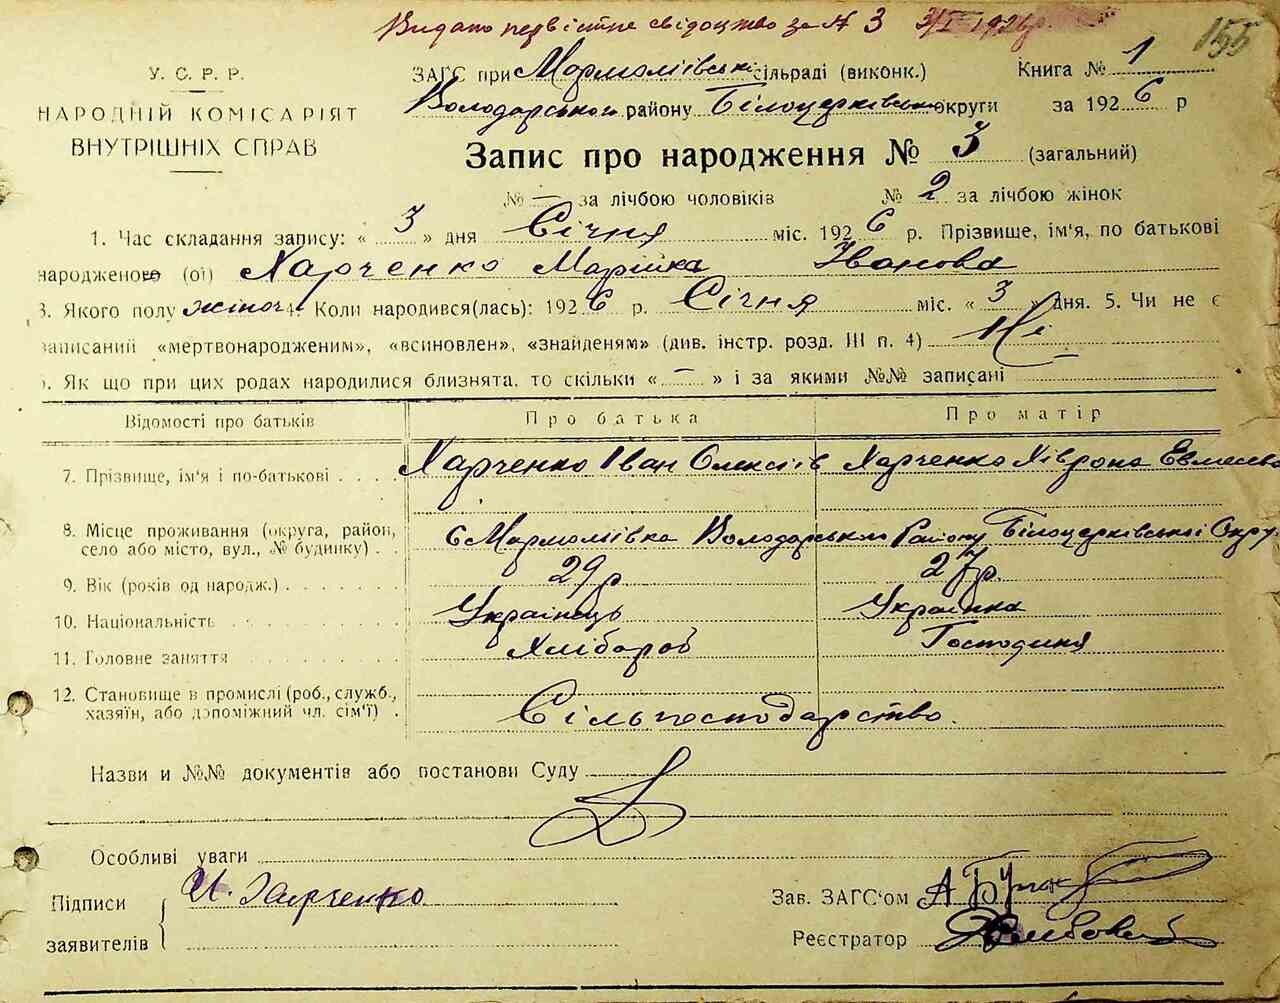 Видано первістне свідоцтво за № 3 3/I 1926р.
155
У. С. Р. Р.
НАРОДНІЙ КОМІСАРІЯТ
ВНУТРІШНІХ СПРАВ
ЗАГС при Мармоліївські сільраді (виконк.) Книга № 1
Володарського району Білоцерківської округи за 1926 р
Запис про народження № 3 (загальний)
№ — за лічбою чоловіків № 2 за лічбою жінок
1. Час складання запису: « 3 » дня Січня міс. 1926 р. Прізвище, ім'я, по батькові
народженого (ої) Харченко Марійка Іванова
3. Якого полу жіноч 4. Коли народився(лась): 1926 р. Січня міс. « 3 » дня. 5. Чи не є
записаний «мертвонародженим», «всиновлен», «знайденям» (див. інстр. розд. III п. 4) Ні
. Як що при цих родах народилися близнята, то скільки « — » і за якими №№ записані
Відомості про батьків Про батька Про матір
7. Прізвище, ім'я і по-батькові Харченко Іван Олексіїв Харченко Хіврона
8. Місце проживання (округа, район, село або місто, вул., № будинку) с Мармоліївка Володарського Району Білоцерківської Окру
9. Вік (років од народж.) 29 р 27 р.
10. Національність Українець Українка
11. Головне заняття Хлібороб Господиня
12. Становище в промислі (роб., служб., хазяїн, або допоміжний чл. сім'ї) Сільгосподарство.
Назви и №№ документів або постанови Суду
Особливі уваги
Підписи заявителів И. Харченко
Зав. ЗАГС'ом А
Реєстратор